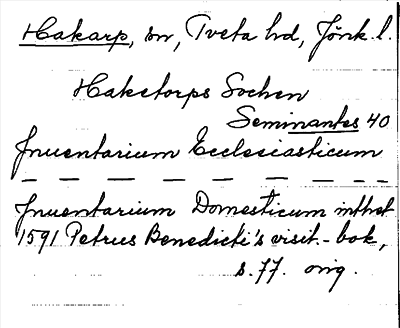 Hakarp, sn, Tveta hd, Jönk. l.
Haketorps Sochen
Seminantes 40
Inuentarium Ecclesiasticum
— — — — — — — — —
Inuentarium Domesticum
1591 Petrus Benedicti's visit.-bok,
s. 77. orig.